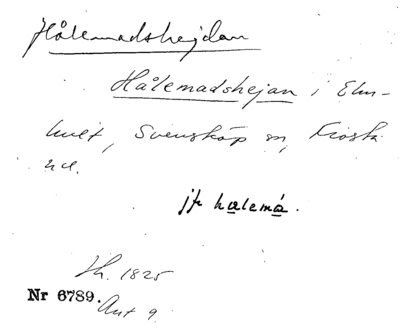 Hålemadshejdan
Hålemadshejan i Elm-
hult, Svensköp sn, Frosta
hd.
jfr halemá.
Th. 1825
Nr 6789.
Ant 9